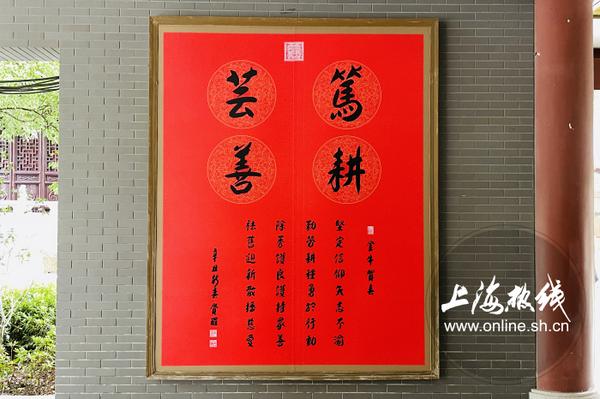 篤耕
芸善
金牛賀春
堅定信仰矢志不渝
勤勞耕種勇於行
除莠護良護持眾善
祛舊迎新散播慈愛
辛丑新春覺醒
上海热线
www.online.sh.cn